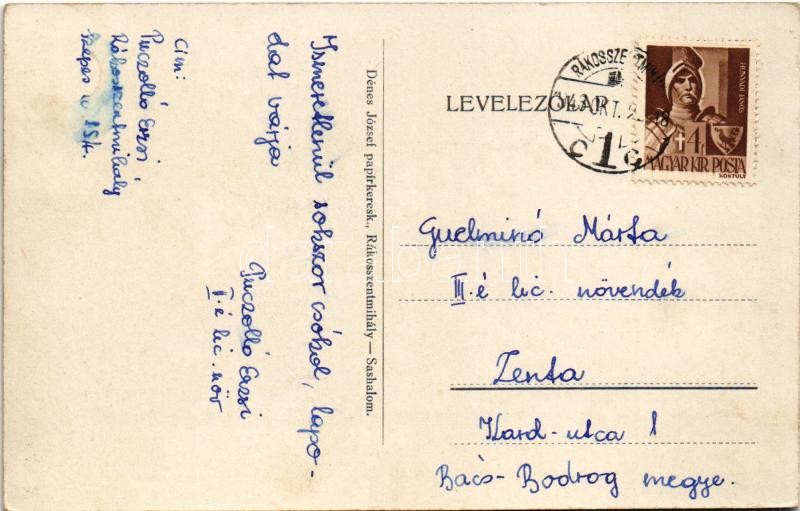 Cim:
Puczolló Erzsi
Rákosszentmihály
Szepes u 15/a.
Ismeretlenül sokszor csókol, lapo-
dat várja
Puczolló Erzsi
I. é lic. növ
Dénes József papírkeresk., Rákosszentmihály—Sashalom.
LEVELEZŐLAP
RÁKOSSZENTMIHÁLY
943 OKT.
1
HUNYADI JÁNOS
4f
MAGYAR KIR. POSTA
KONTULY
Guelminó Márta
III. é lic. növendék
Zenta
Kard-utca 1
Bács-Bodrog megye.
darabanth.com